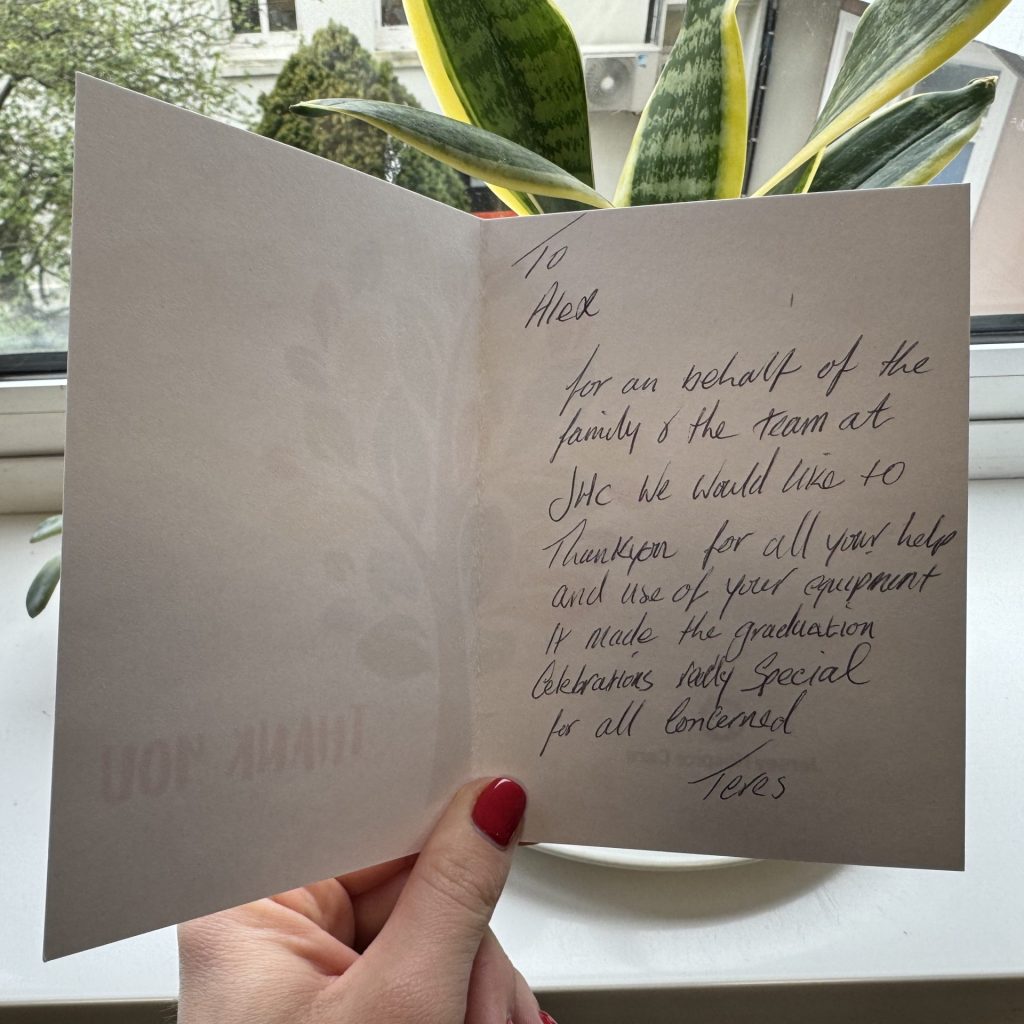 To
Alex
for an behalf of the
family & the team at
JHC We would like to
Thankyou for all your help
and use of your equipment
It made the graduation
Celebrations really Special
for all Concerned
Teres
THANK YOU